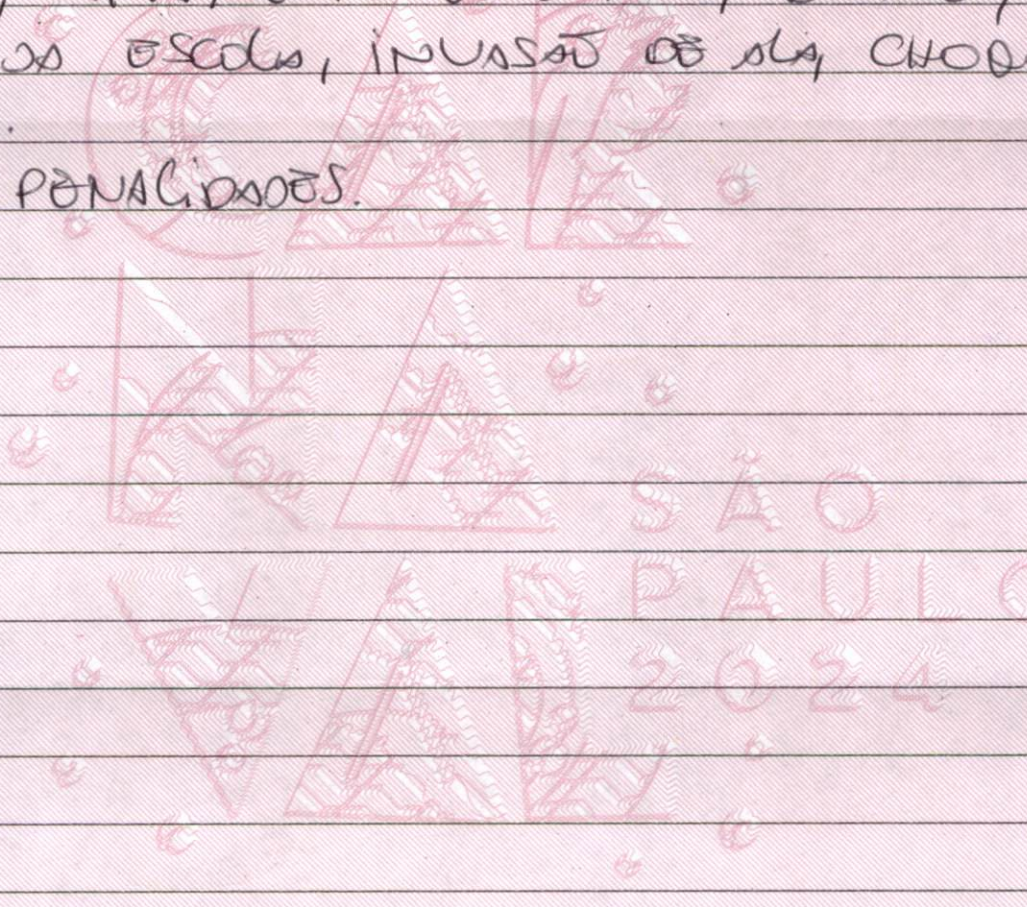 DA ESCOLA, INVASÃO DE ALA, CHOQ
.
PENALIDADES.
CAR
NA
VAL
SÃO
PAULO
2024